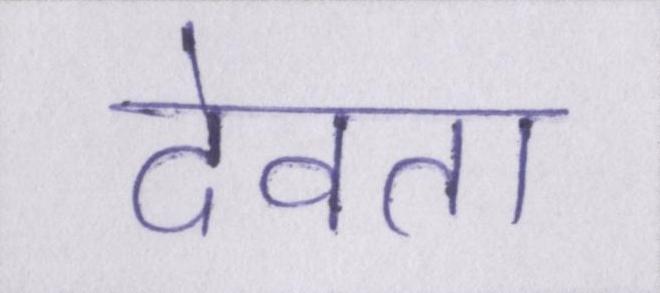 देवता